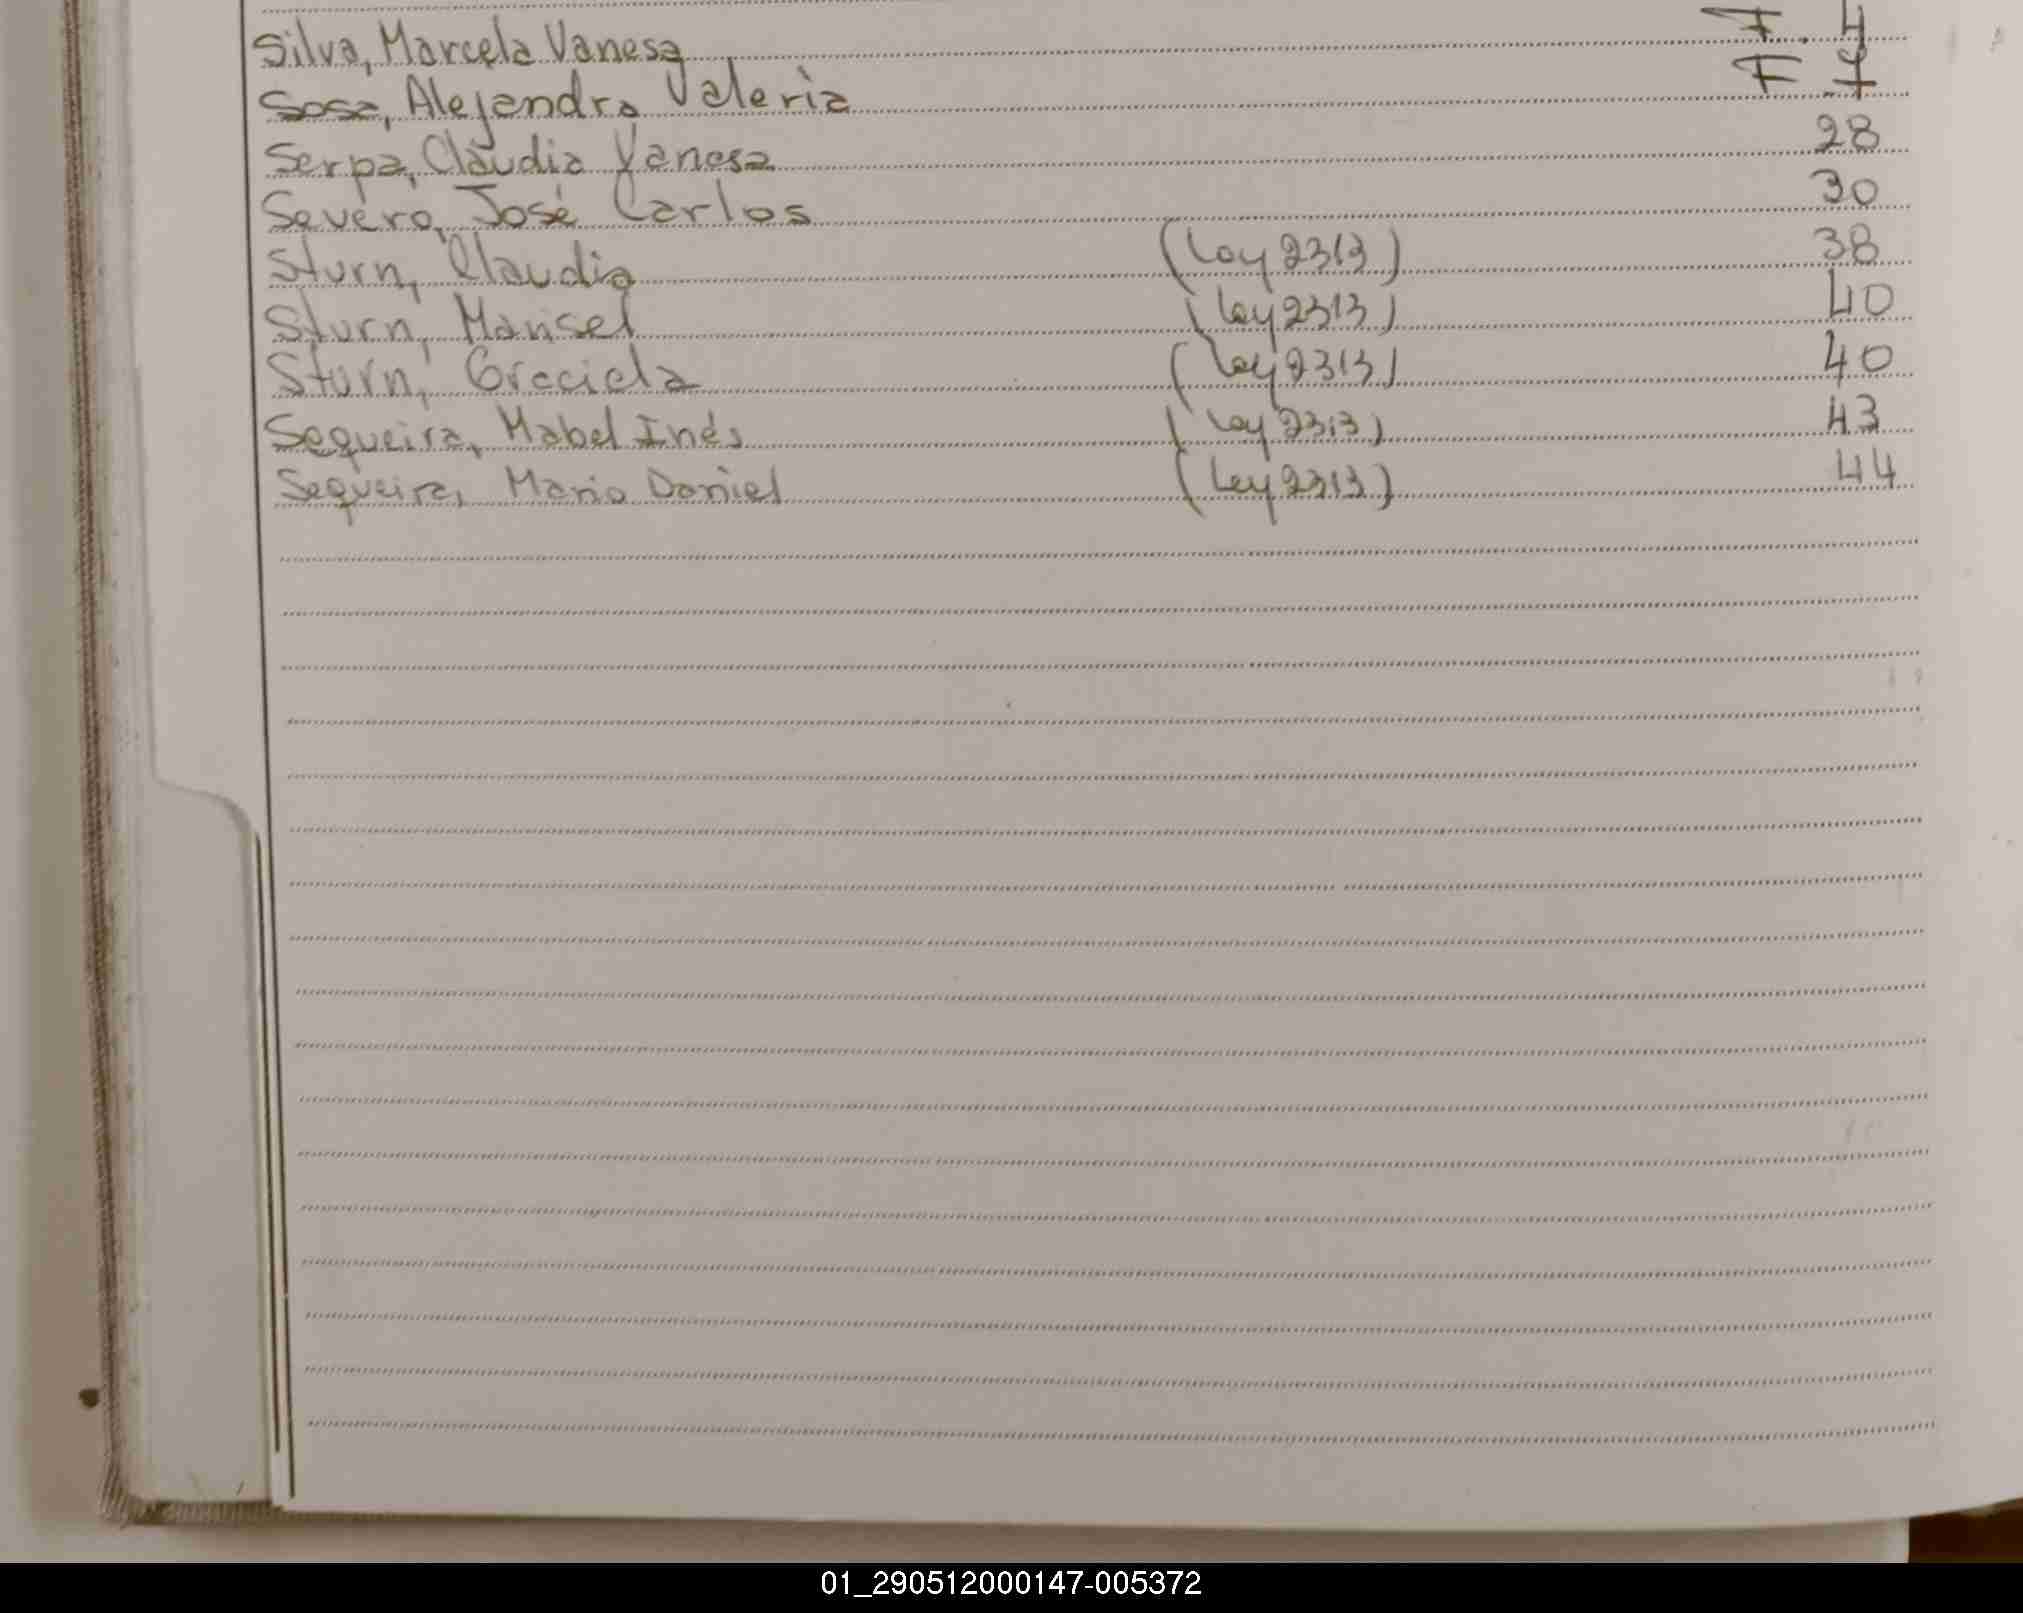 Silva, Marcela Vanesa F. 4
Sosa, Alejandra Valeria F 7
Serpa, Claudia Vanesa 28
Severo, José Carlos 30
Sturn, Claudia (Ley 2313) 38
Sturn, Marisel (Ley 2313) 40
Sturn, Graciela (Ley 2313) 40
Sequeira, Mabel Inés (Ley 2313) 43
Sequeira, Mario Daniel (Ley 2313) 44
01_290512000147-005372